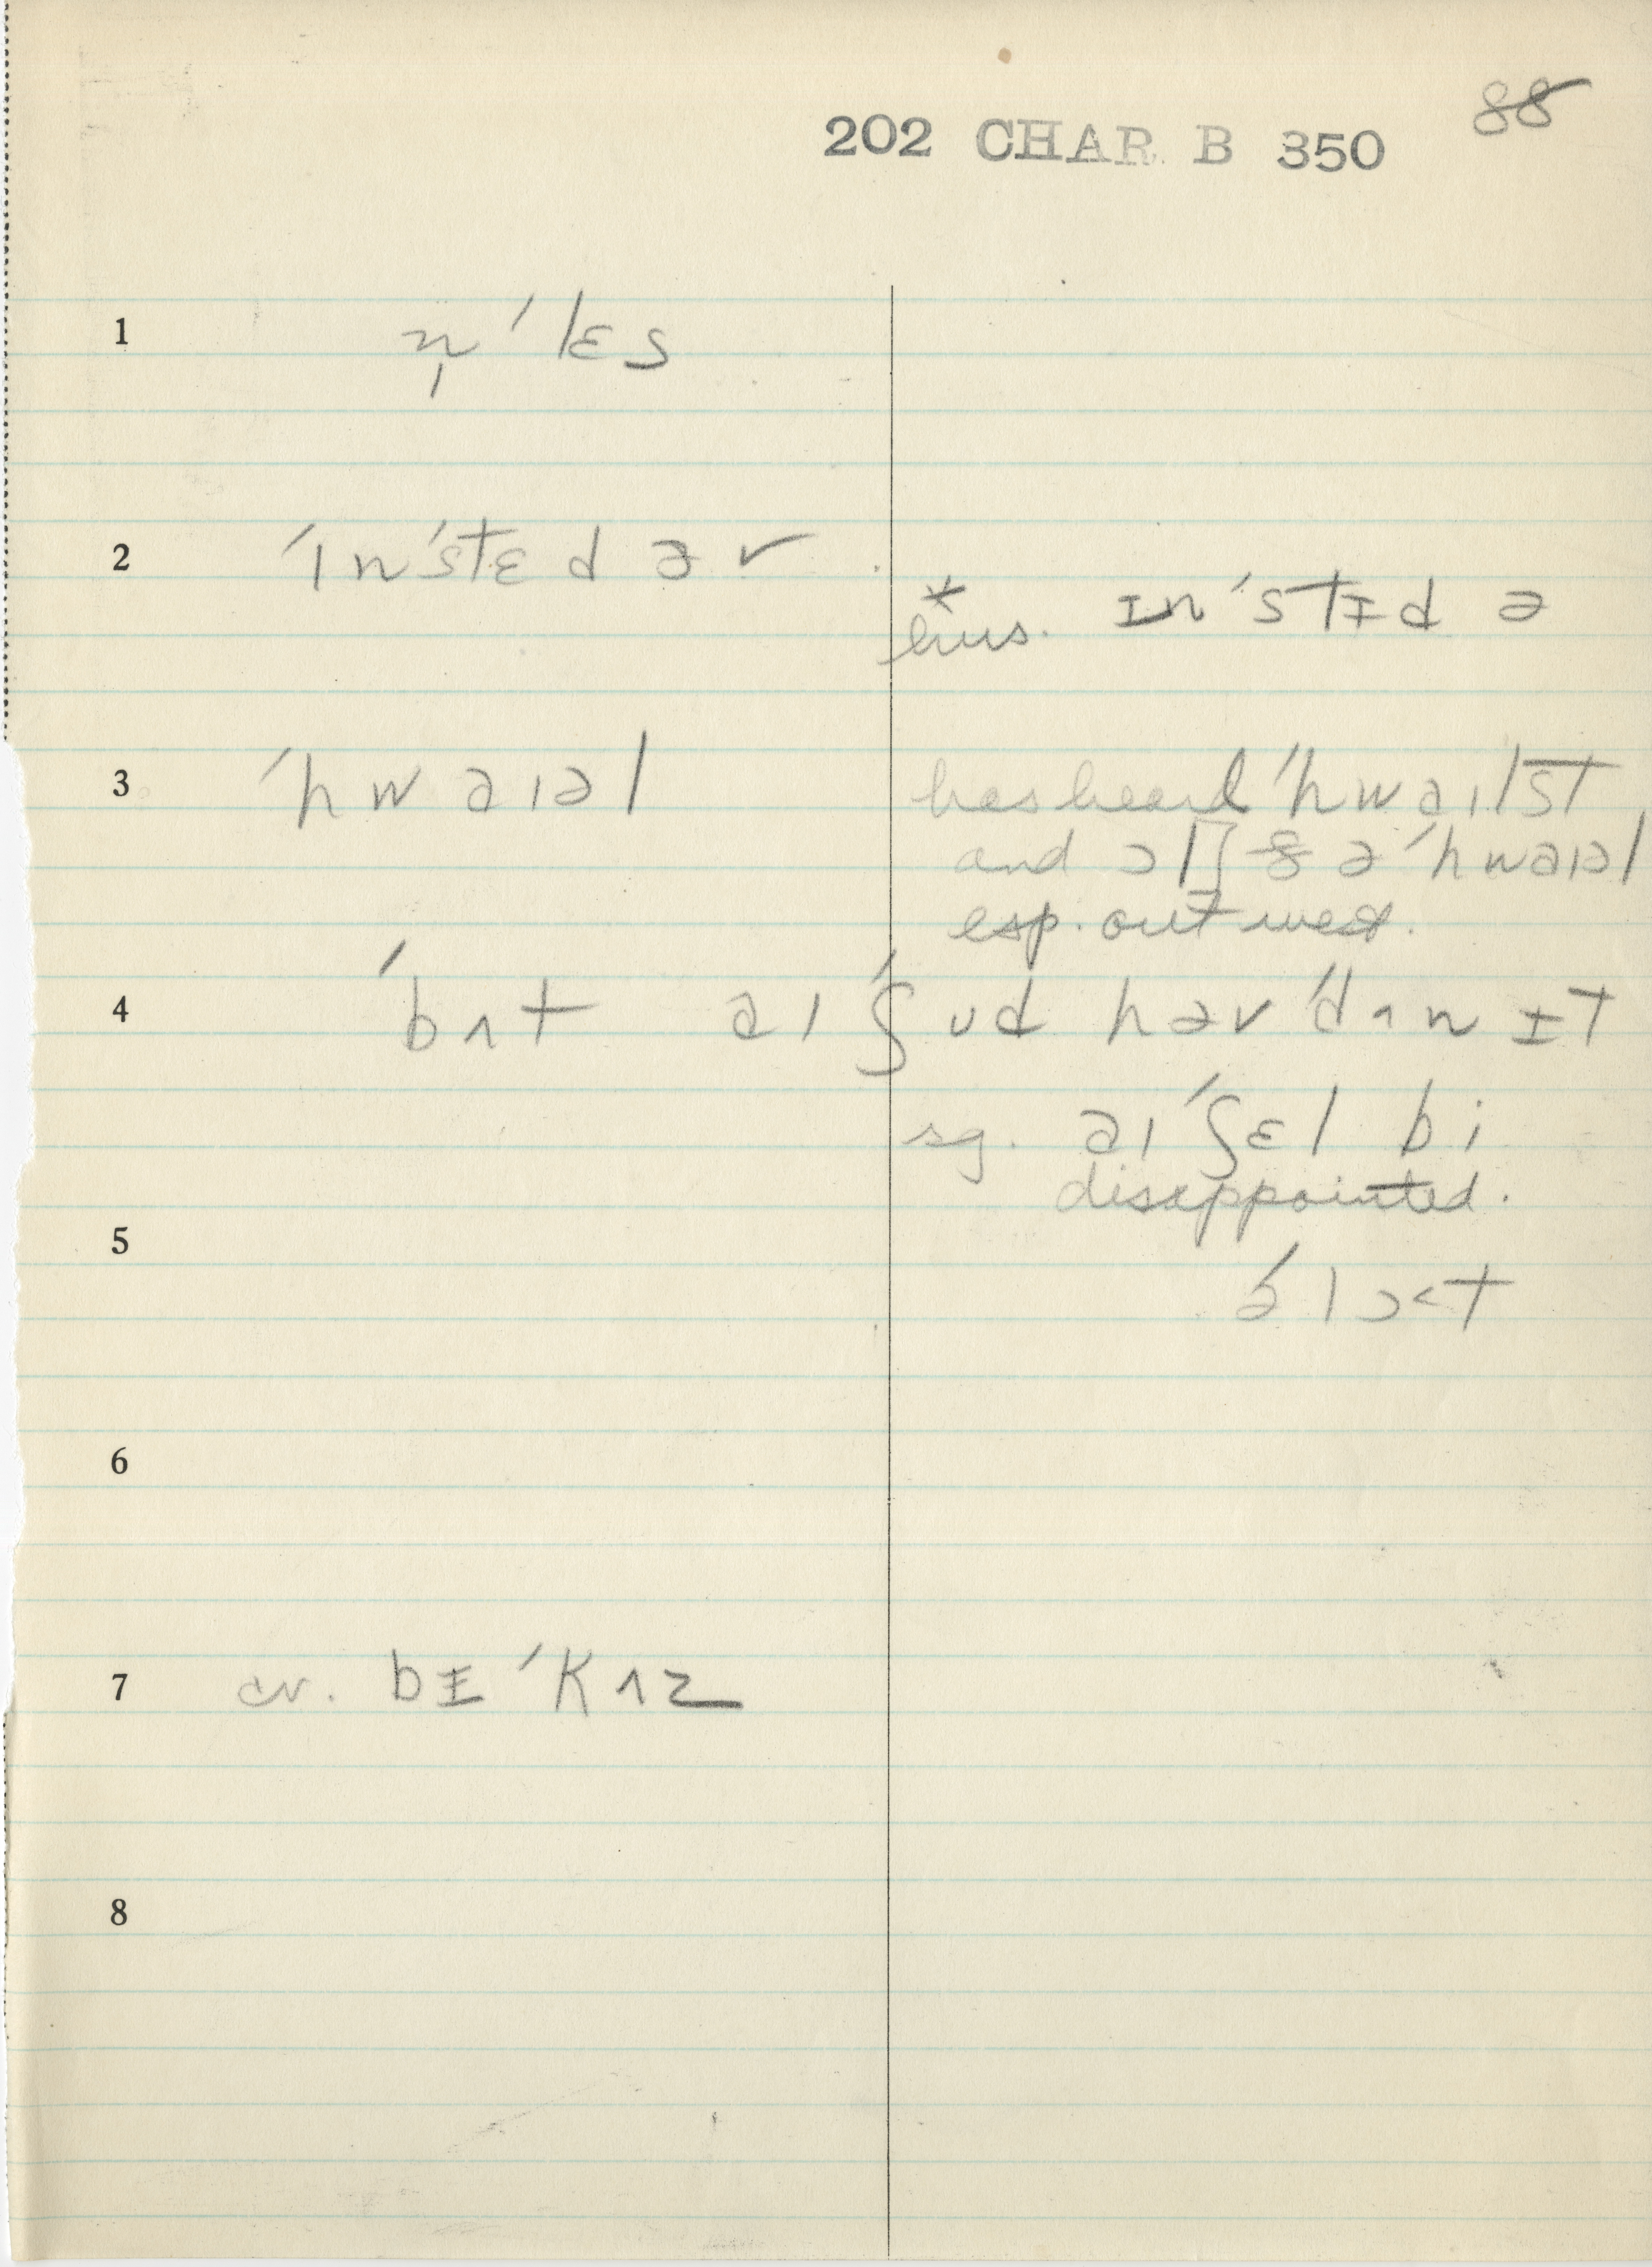 88
202 CHAR B 350
1 n̩ ˈlɛs
2 ˈɪnˈstɛd əv
* hus. ɪnˈstɪd ə
3 ˈhwaɪəl
has heard ˈhwaɪlst
and ɔl ə ˈhwaɪəl
esp. out west.
4 ˈbʌt aɪ ˈʃʊd həv ˈdʌn ɪt
sg. aɪ ˈʃɛl bi
disappointed.
5
əˈlɔ˂t
6
7 cv. bɪˈkʌz
8